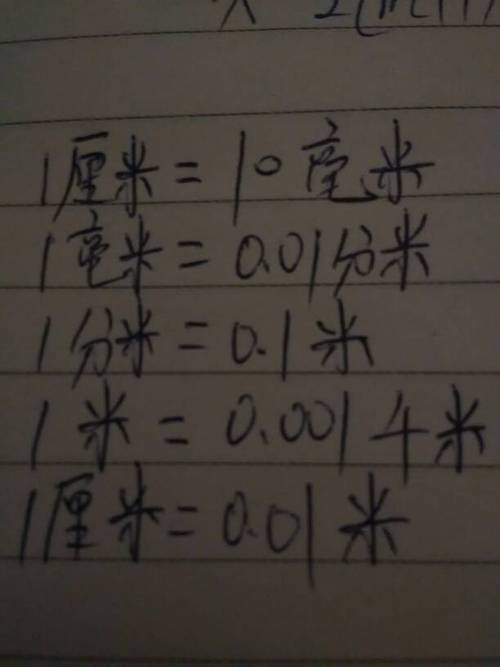 1厘米=10毫米
1毫米=0.01分米
1分米=0.1米
1米=0.001千米
1厘米=0.01米